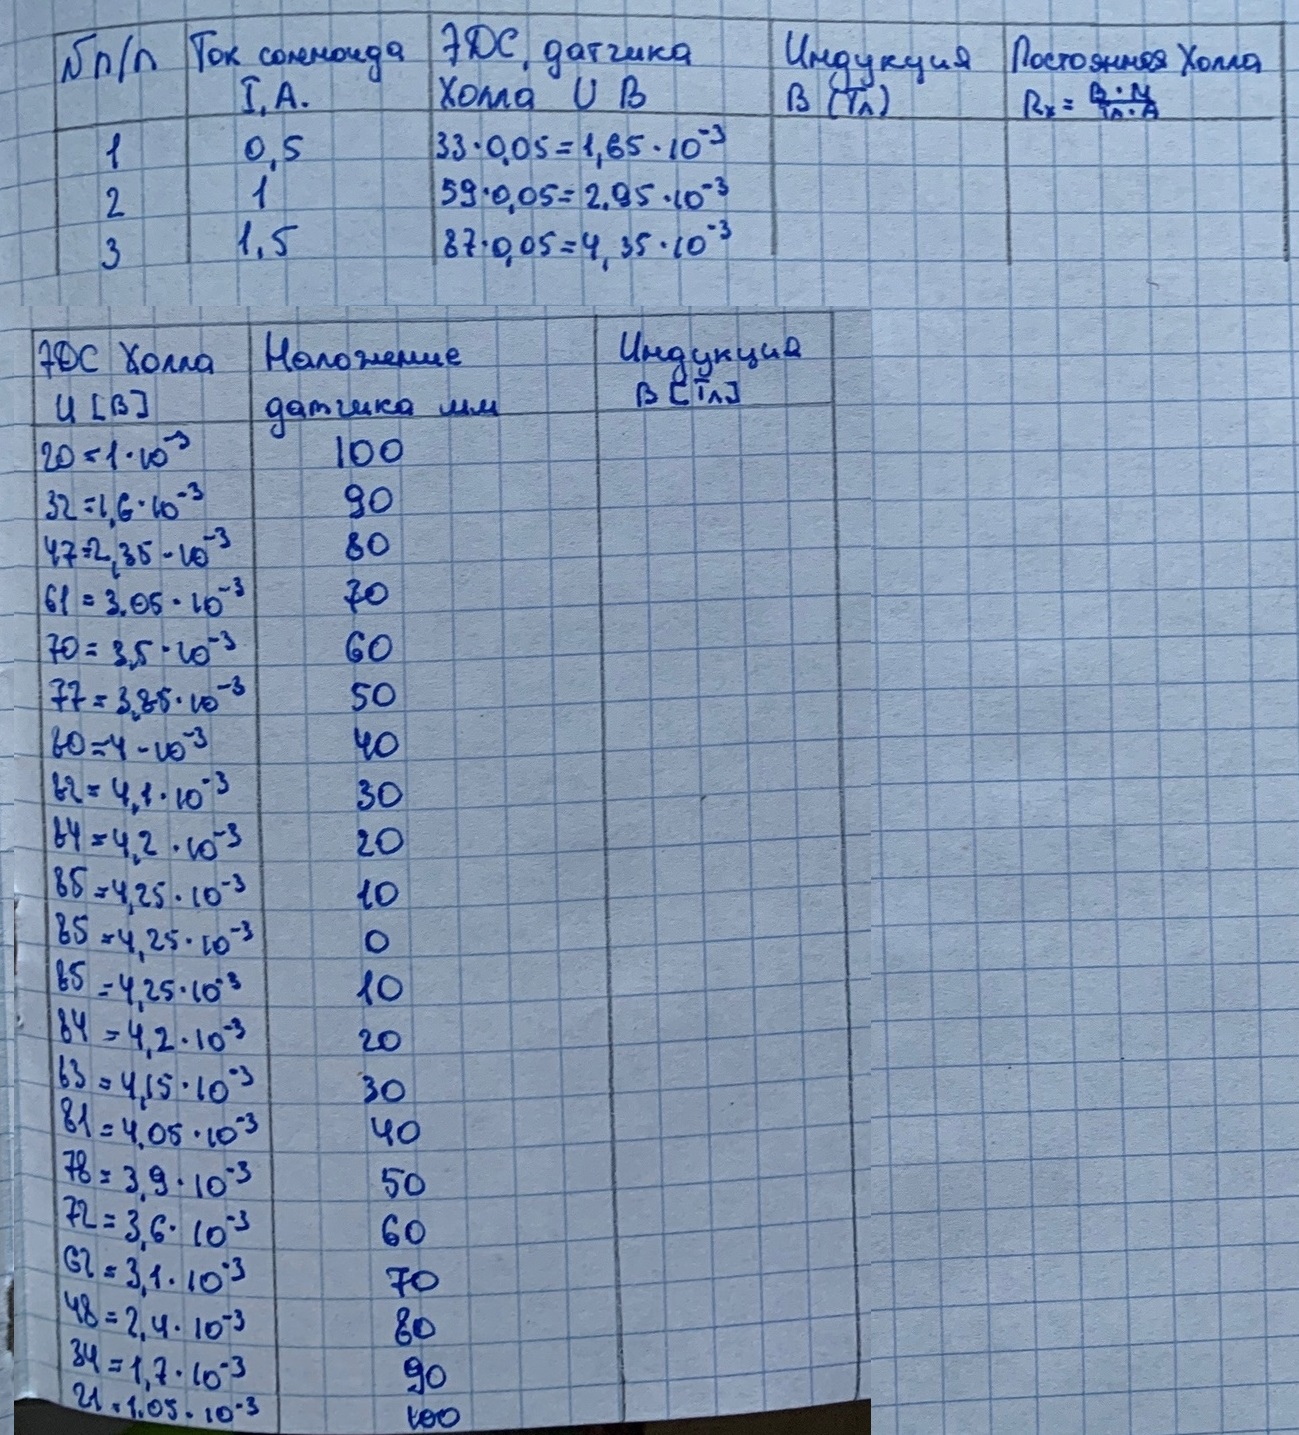 № п/п Ток соленоида ЭДС, датчика Индукция Постоянная Холла
I, А. Холла U В В (Тл) Rx = В·М/Тл·А
1 0,5 33·0,05=1,65·10⁻³
2 1 59·0,05=2.95·10⁻³
3 1,5 87·0,05=4,35·10⁻³
ЭДС Холла Наложение Индукция
U [В] датчика мм В [Тл]
20=1·10⁻³ 100
32=1,6·10⁻³ 90
47=2,35-10⁻³ 80
61=3,05·10⁻³ 70
70=3,5·10⁻³ 60
77=3,85·10⁻³ 50
80=4-10⁻³ 40
82=4,1·10⁻³ 30
84=4,2·10⁻³ 20
85=4,25·10⁻³ 10
85=4,25·10⁻³ 0
85=4,25·10⁻³ 10
84=4,2·10⁻³ 20
83=4,15·10⁻³ 30
81=4,05·10⁻³ 40
78=3,9·10⁻³ 50
72=3,6·10⁻³ 60
62=3,1·10⁻³ 70
48=2,4·10⁻³ 80
34=1,7·10⁻³ 90
21=1.05·10⁻³ 100